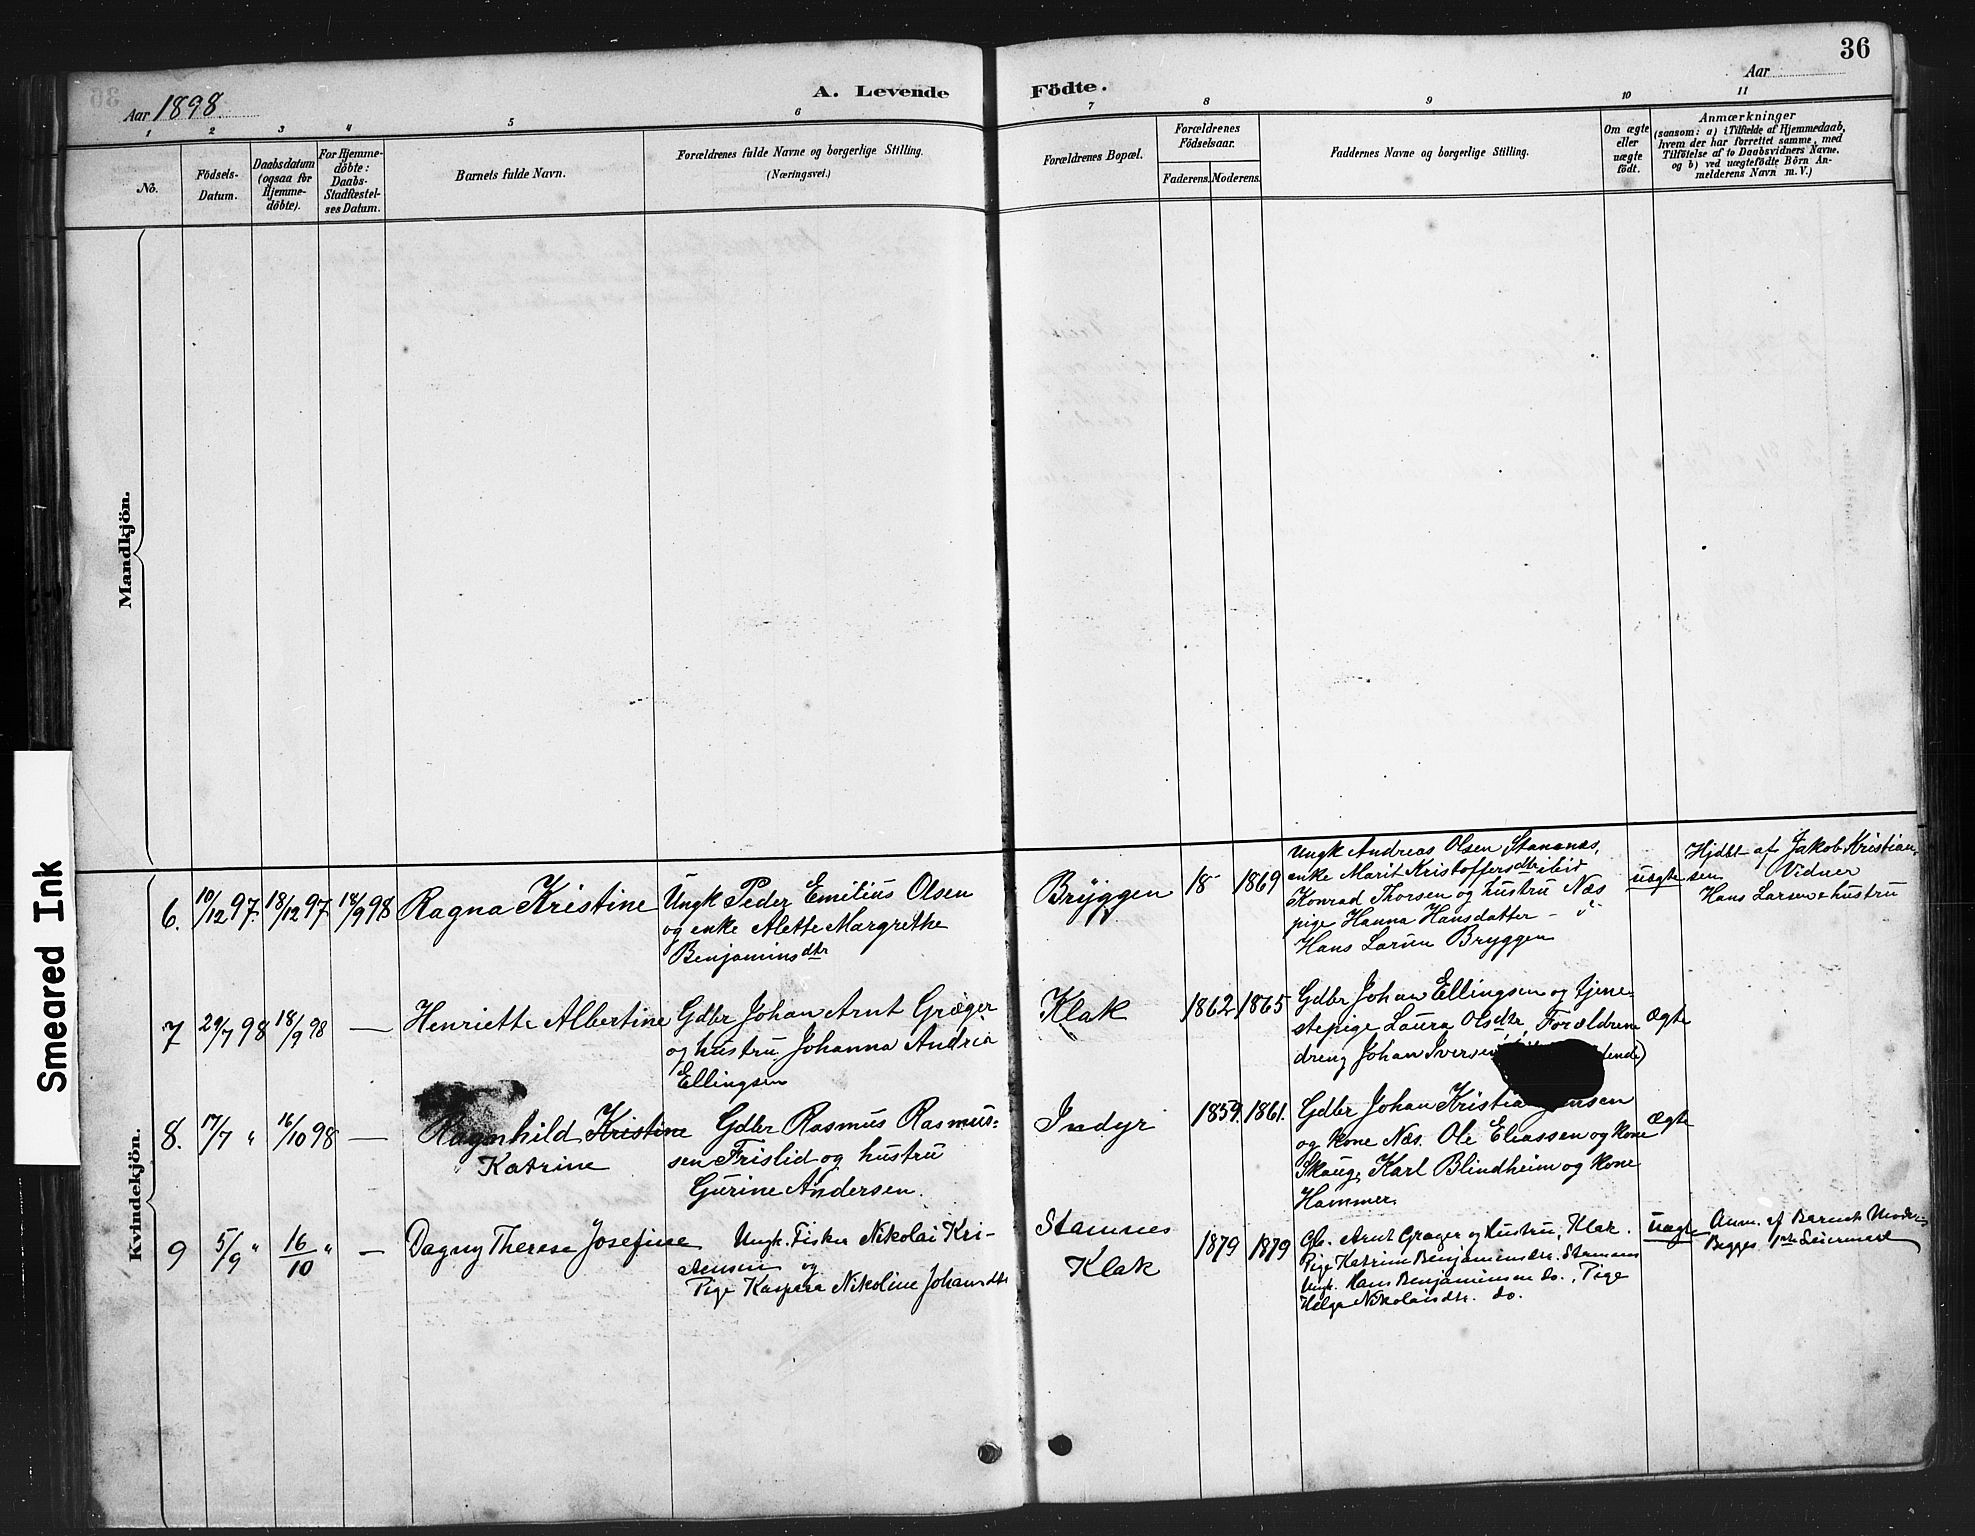 36
Aar 1898.
A. Levende Födte.
Aar
1 2 3 4 5 6 7 8 9 10 11
No.
Födsels-Datum.
Daabsdatum (ogsaa for Hjemme-döbte).
For Hjemme-döbte: Daabs-Stadfæstel-ses Datum.
Barnets fulde Navn.
Forældrenes fulde Navne og borgerlige Stilling.
(Næringsvei.)
Forældrenes Bopæl.
Forældrenes Födselsaar.
Faderens. Moderens.
Faddernes Navne og borgerlige Stilling.
Om ægte eller uægte födt.
Anmærkninger
(saasom: a) i Tilfælde af Hjemmedaab,
hvem der har forrettet samme, med
Tilföielse af to Daabsvidners Navne,
og b) ved uægtefödte Börn An-
melderens Navn m. V.)
Mandkjön.
Kvindekjön.
Smeared Ink
6. 10/12 97. 18/12 97 18/9 98 Ragna Kristine
Ungk Peder Emilius Olsen
og enke Alette Margrethe
Benjaminsdtr
Bryggen
18 1869
Ungk Andreas Olsen Stamnes,
enke Marit Kristoffersdtr ibid
Konrad Thorsen og hustru Næs
pige Hanna Hansdatter
Hans Larsen Bryggen
uægte
Hjdbt af Jakob Kristian-
sen Vidner
Hans Larsen & hustru
7 29/7 98 18/9 98 — Henriette Albertine
Gdbr Johan Arnt Græger
og hustru Johanna Andria
Ellingsen
Klak
1862 1865
Gdbr Johan Ellingsen og tjene-
stepige Laura Olsdtr, Forældrene
dreng Johan Iversen
ægte
8. 17/7 " 16/10 98 — Ragnhild Kristine
Katrine
Gdbr Rasmus Rasmus-
sen Frislid og hustru
Gurine Andersen.
Indyr
1859. 1861.
Gdbr Johan Kristian Jensen
og kone Næs. Ole Eliassen og kone
Skaug, Karl Blindheim og kone
Hammer
ægte
9 5/9 " 16/10 " — Dagny Therese Josefine
Ungk. Fisker Nikolai Kri-
stensen og
Pige Kaspara Nikoline Johansdtr
Stamnes
Klak
1879 1879
Gb. Arnt Græger og Hustru, Klak.
Pige Katrine Benjaminsdtr. Stamnes
Ungk. Hans Benjaminsen do., Pige
Helga Nikolaisdtr. do.
uægte
Anm. af Barnets Moder
Begges 1ste Leiermaal